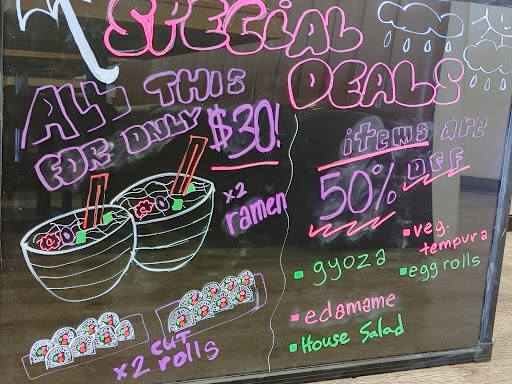 SPECIAL
DEALS
ALL THIS
FOR ONLY
$30!
x2
ramen
x2 cut
rolls
items are
50% OFF
gyoza
veg.
tempura
egg rolls
edamame
House Salad